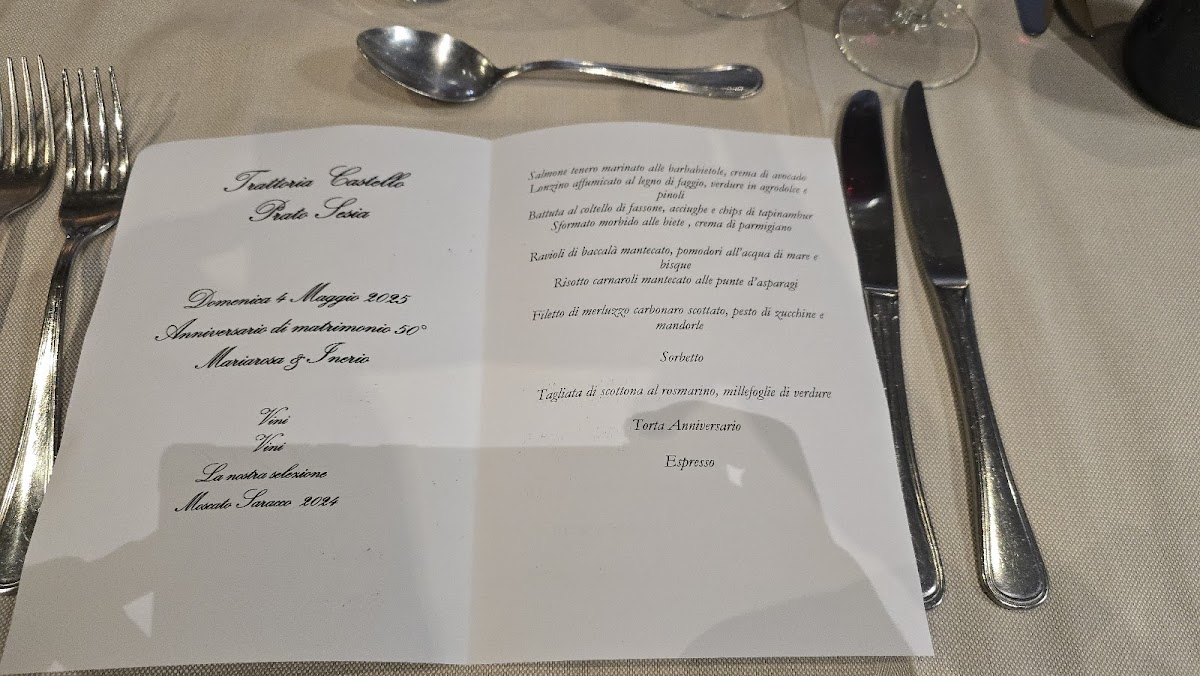 Trattoria Castello
Prato Sesia
Domenica 4 Maggio 2025
Anniversario di matrimonio 50°
Mariarosa & Inerio
Vini
Vini
La nostra selezione
Moscato Saracco 2024
Salmone tenero marinato alle barbabietole, crema di avocado
Lonzino affumicato al legno di faggio, verdure in agrodolce e
pinoli
Battuta al coltello di fassone, acciughe e chips di tapinambur
Sformato morbido alle biete , crema di parmigiano
Ravioli di baccalà mantecato, pomodori all'acqua di mare e
bisque
Risotto carnaroli mantecato alle punte d'asparagi
Filetto di merluzzo carbonaro scottato, pesto di zucchine e
mandorle
Sorbetto
Tagliata di scottona al rosmarino, millefoglie di verdure
Torta Anniversario
Espresso